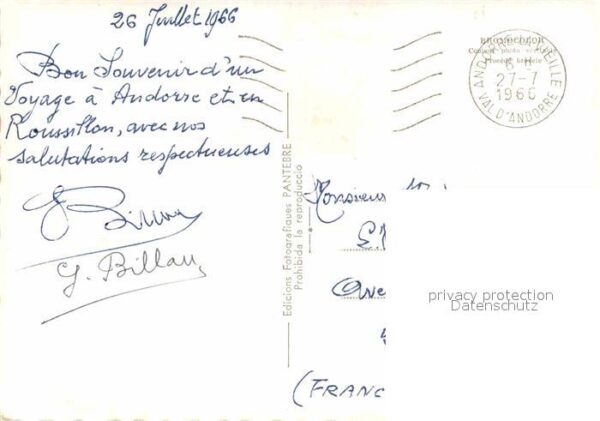 26 Juillet 1966
Bon Souvenir d'un
Voyage à Andorre et en
Roussillon, avec nos
salutations respectueuses
G. Billau
Edicions Fotografiques PANTEBRE
Prohibida la reproducció
ANDORRE-LA-VIEILLE
27-7
1966
VAL D'ANDORRE
Monsieur
privacy protection
Datenschutz
(FRANC